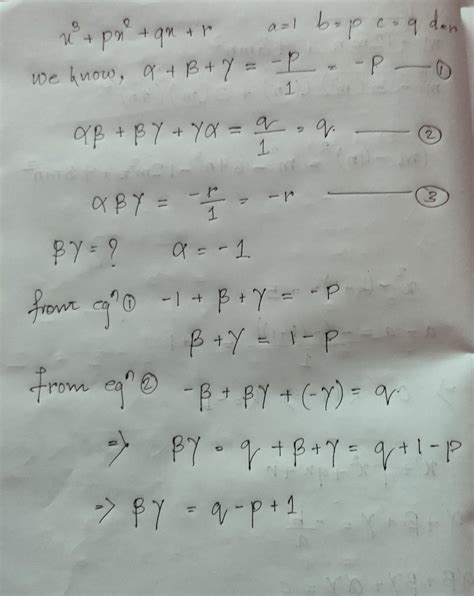 x³ + px² + qx + r a=1 b=p c=q d=r
we know, α + β + γ = -p/1 = -p — ①
αβ + βγ + γα = q/1 = q. — ②
αβγ = -r/1 = -r — ③
βγ = ? α = -1
from eqⁿ ① -1 + β + γ = -p
β + γ = 1 - p
from eqⁿ ② -β + βγ + (-γ) = q.
⇒ βγ = q + β + γ = q + 1 - p
⇒ βγ = q - p + 1